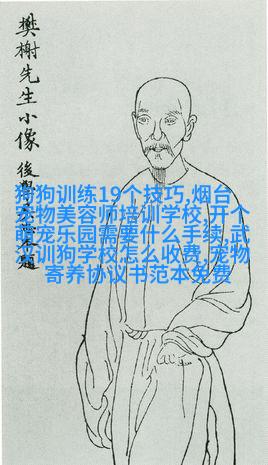 樊榭先生小像
後學
本題
狗狗训练19个技巧,烟台
宠物美容师培训学校,开个
萌宠乐园需要什么手续,武
汉训狗学校怎么收费,宠物
寄养协议书范本免费